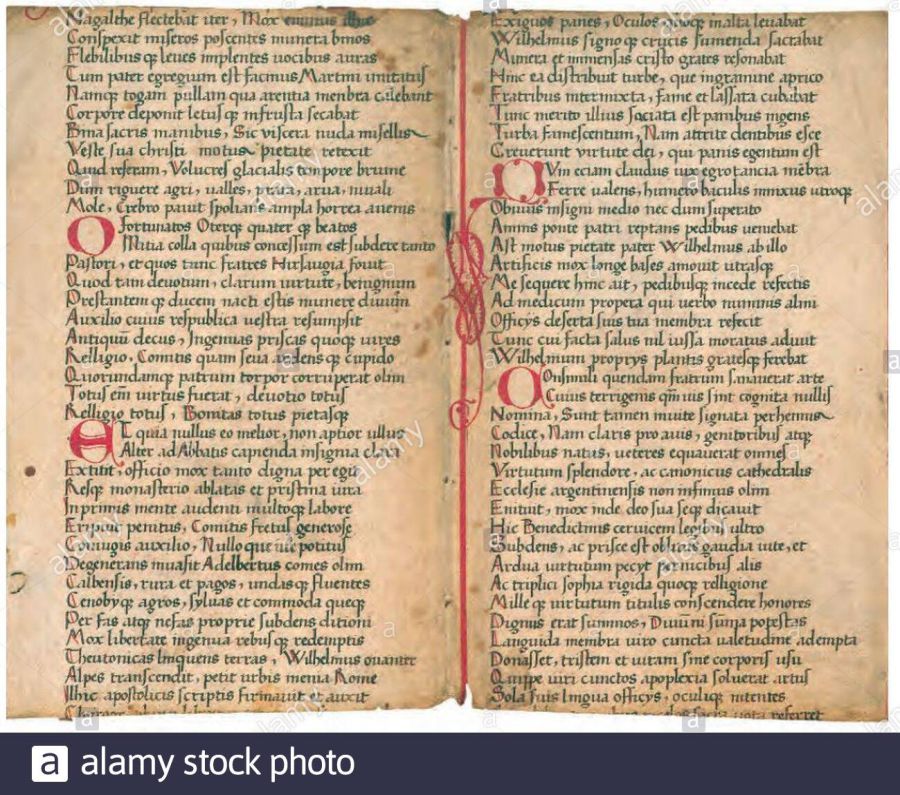 Magalthe flectebat iter, Mox eminus
Conspexit miseros poscentes munera binos
Flebilibusq leues implentes uocibus auras
Tum pater egregium est facinus Martini imitatus
Namq togam pullam qua arentia menbra calebant
Corpore deponit letusq infrusta secabat
Bina sacris manibus, Sic viscera nuda misellis
Veste sua christi motus pietate retexit
Quid referam, Volucres glacialis tempore brume
Dum riguere agri, ualles, prata, arua, niuali
Mole, Crebro pauit spolians ampla horrea auenis
O fortunatos Oterq quater q beatos
Mitia colla quibus concessum est subdere tanto
Pastori, et quos tunc fratres Hirsaugia fouit
Quod tam deuotum, clarum uirtute, benignum
Prestantem q ducem nacti estis munere diuum
Auxilio cuius respublica vestra resumpsit
Antiquū decus, Ingenuas priscas quoq uires
Relligio, Comitis quam seua ardensq cupido
Quorundamq patrum torpor corruperat olim
Totus em virtus fuerat, deuotio totus
Relligio totus, Bonitas totus pietasq
Et quia nullus eo melior, non aptior ullus
Alter ad Abbatis capienda insignia clara
Extitit, officio mox tanto digna peregit
Resq monasterio ablatas et pristina iura
In primis mente audenti multoq labore
Eripuit penitus, Comitis fretus generose
Coniugis auxilio, Nullo que potitus
Degenerans inuasit Adelbertus comes olim
Calbensis, rura et pagos, undasq fluentes
Cenobyq agros, syluas et commoda queq
Per fas atq nefas proprie subdens ditioni
Mox libertate ingenua rebusq redemptis
Theutonicas linquens terras, Wilhelmus ouanter
Alpes transcendit, petit urbis menia Rome
Illic apostolicis scriptis firmauit et auxit
Exiguos panes, Oculos quoq multa leuabat
Wilhelmus signoq crucis sumenda sacrabat
Munera et immensas cristo grates resonabat
Hinc ea distribuit turbe, que ingramine aprico
Fratribus intermixta, fame et lassata cubabat
Tunc merito illius sociata est panibus ingens
Turba famescentum, Nam attrite dentibus esce
Creuerunt virtute dei, qui panis egentum est
Vin eciam claudus uix egrotancia mēbra
Ferre valens, humero baculis innixus utroq
Obuius insigni medio nec dum superato
Amnis ponte patri reptans pedibus ueniebat
Ast motus pietate pater Wilhelmus ab illo
Artificis mox longe bases amouit utrasq
Me sequere hinc ait, pedibusq incede refectis
Ad medicum propera qui verbo numinis almi
Officys deserta suis tua membra refecit
Tunc cui facta salus nil iussa moratus adiuit
Wilhelmum proprys plantis gratesq ferebat
Consimili quendam fratrum sanauerat arte
Cuius terrigenis qmuis sint cognita nullis
Nomina, Sunt tamen in vite signata perhennis
Codice, Nam claris pro auis, genitoribus atq
Nobilibus natus, veteres equauerat omnes
Virtutum splendore, ac canonicus cathedralis
Ecclesie argentinensis non infimus olim
Enituit, mox inde deo sua seq dicauit
Hic Benedictinis ceruicem legibus ultro
Subdens, ac prisce est oblitus gaudia uite, et
Ardua virtutum pecyt pernicibus alis
Ac triplici sophia rigida quoq relligione
Milleq virtutum titulis conscendere honores
Dignus erat summos, Diuini
Languida membra viro cuncta ualetudine adempta
Donasset, tristem et uitam sine corporis usu
Quippe uiri cunctos apoplexia soluerat artus
Sola suis lingua officys, oculiq nitentes
uota referret
alamy stock photo